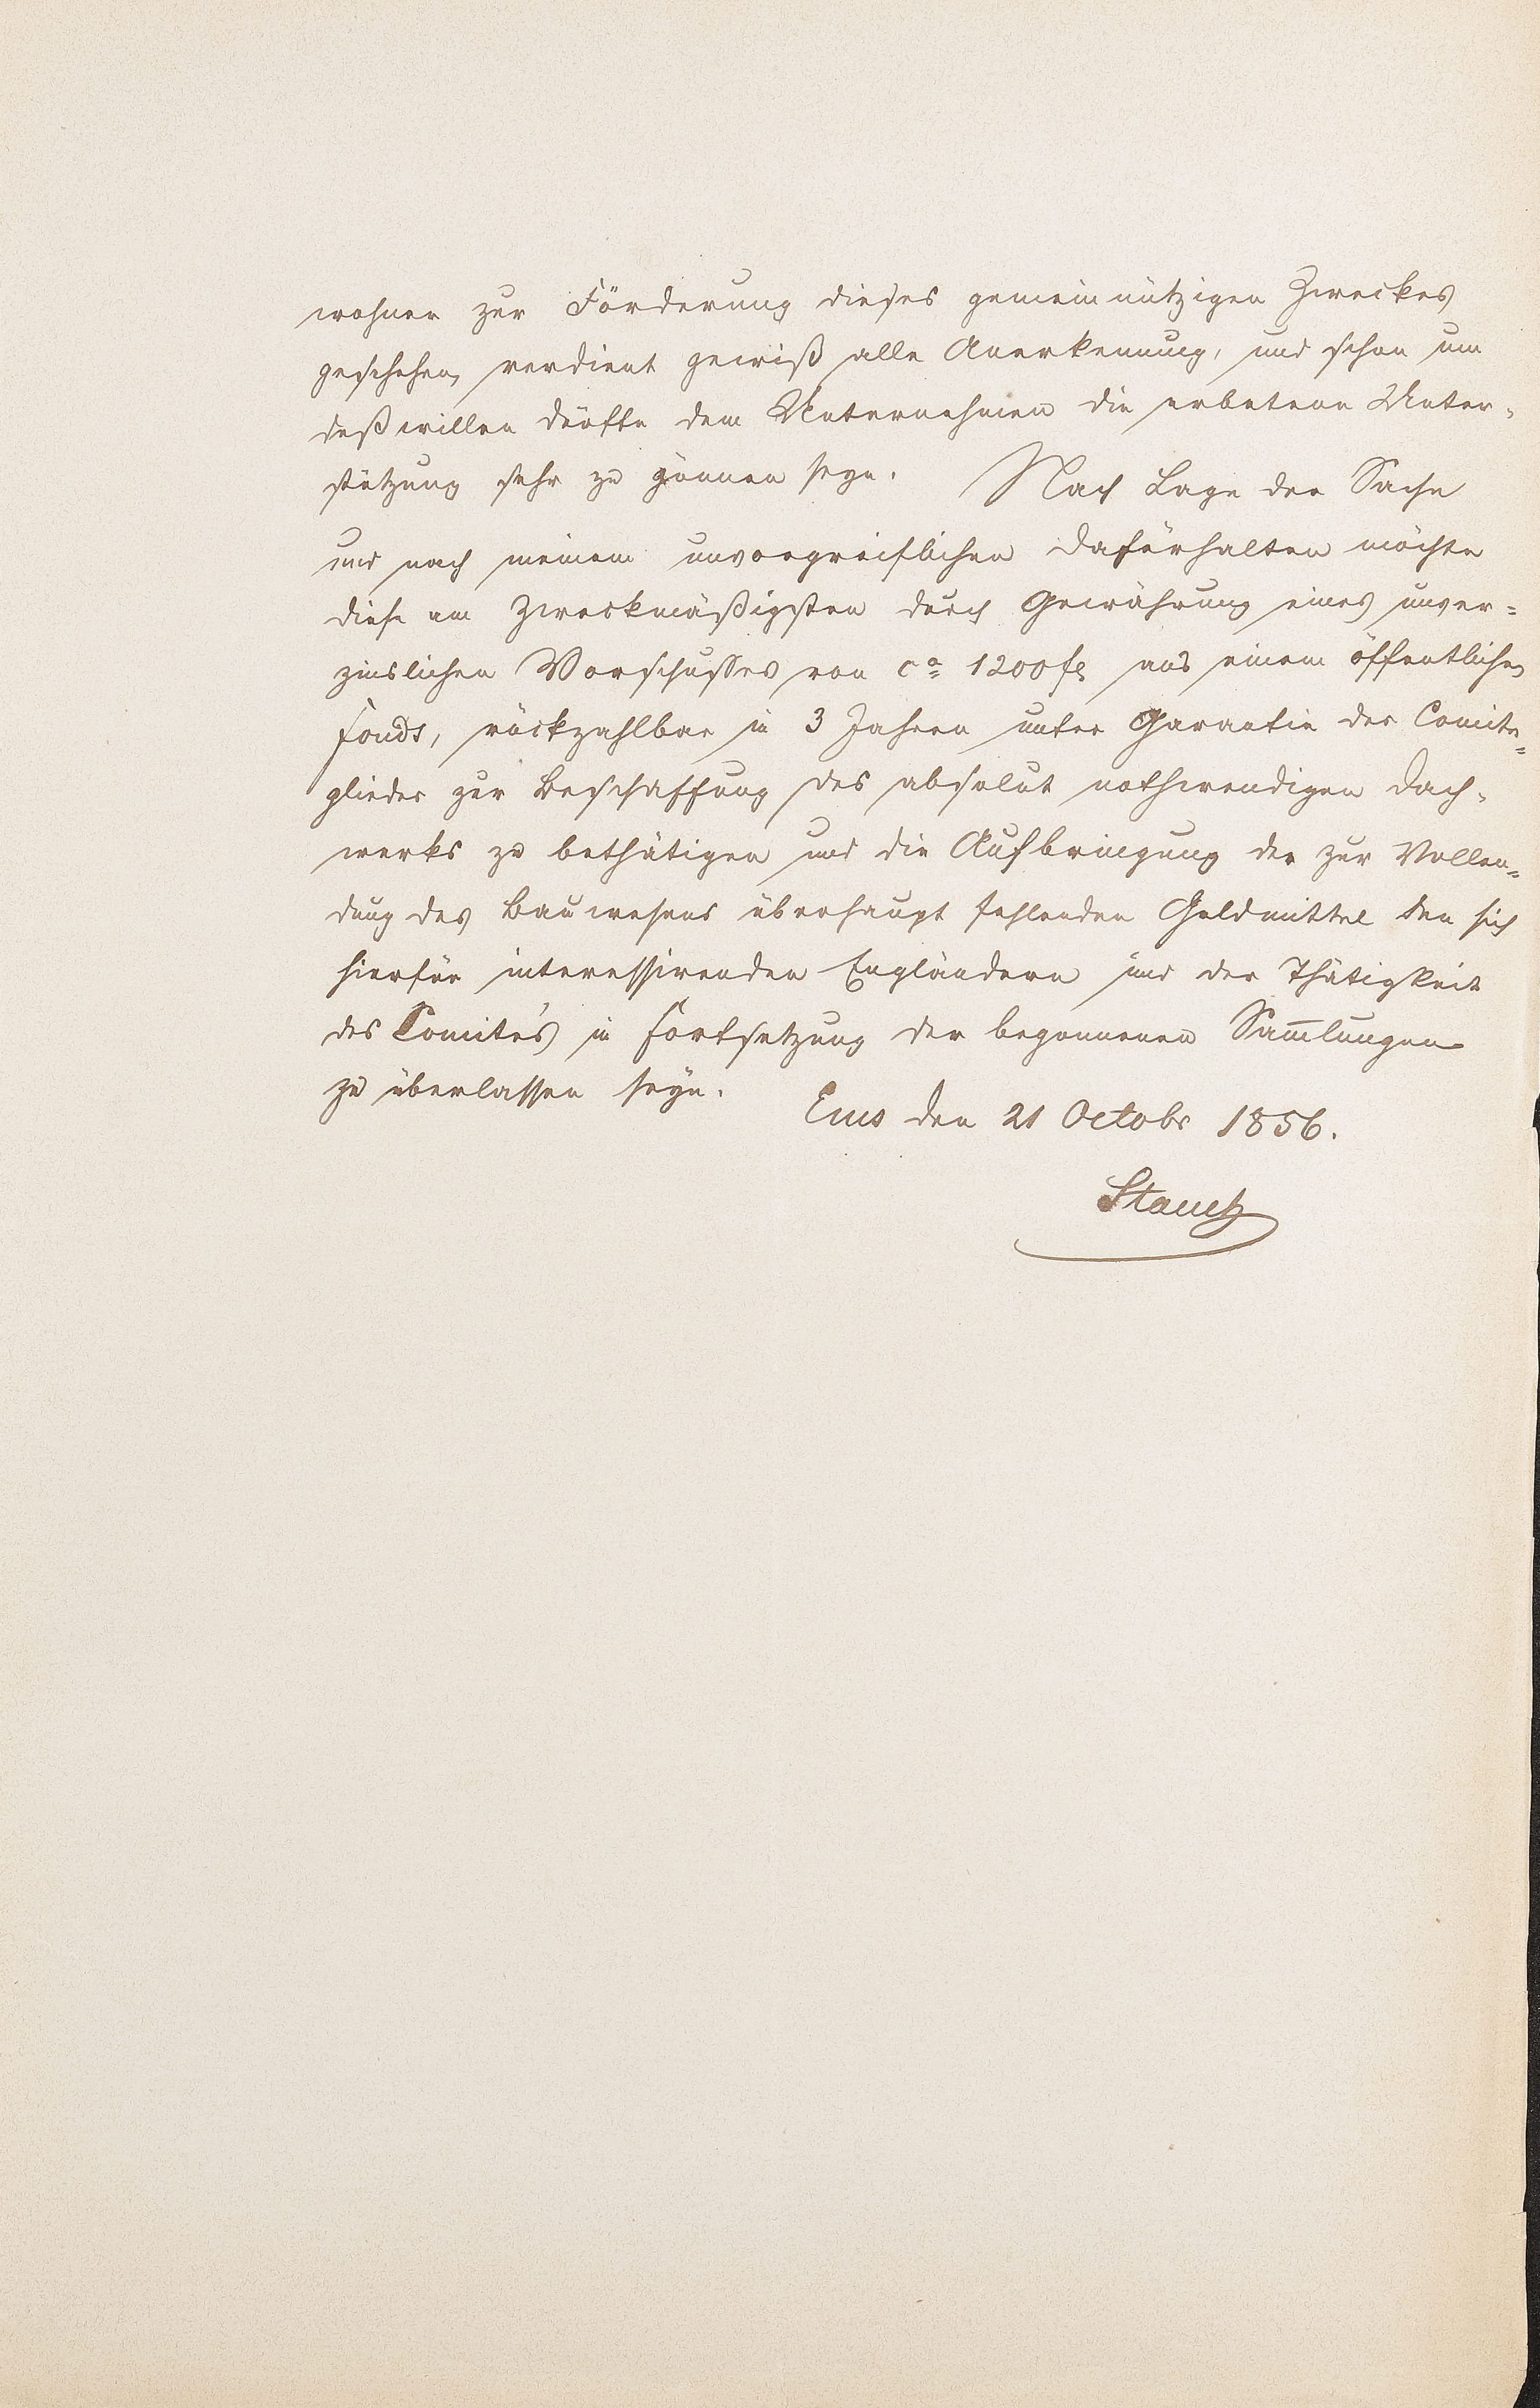 wohner zur Förderung dieses gemeinnützigen Zweckes
geschehen, verdient gewiß alle Anerkennung, und schon um
deßwillen dürfte dem Unternehmen die erbetene Unter-
stützung sehr zu gönnen seyn. Nach Lage der Sache
und nach meinem unvorgreiflichen Dafürhalten möchte
diese am Zweckmäßigsten durch Gewährung eines unver=
zinslichen Vorschusses von ca 1200 fl aus einem öffentlichen
Fonds, rückzahlbar in 3 Jahren unter Garantie der Comite=
glieder zur Beschaffung des absolut nothwendigen Dach-
werks zu bethätigen und die Aufbringung der zur Vollen=
dung des Bauwesens überhaupt fehlenden Geldmittel den sich
hierfür interessirenden Engländern und der Thätigkeit
des Comités in Fortsetzung der begonnenen Sam̅lungen
zu überlassen seyn.
Ems den 21 Octobr 1856.